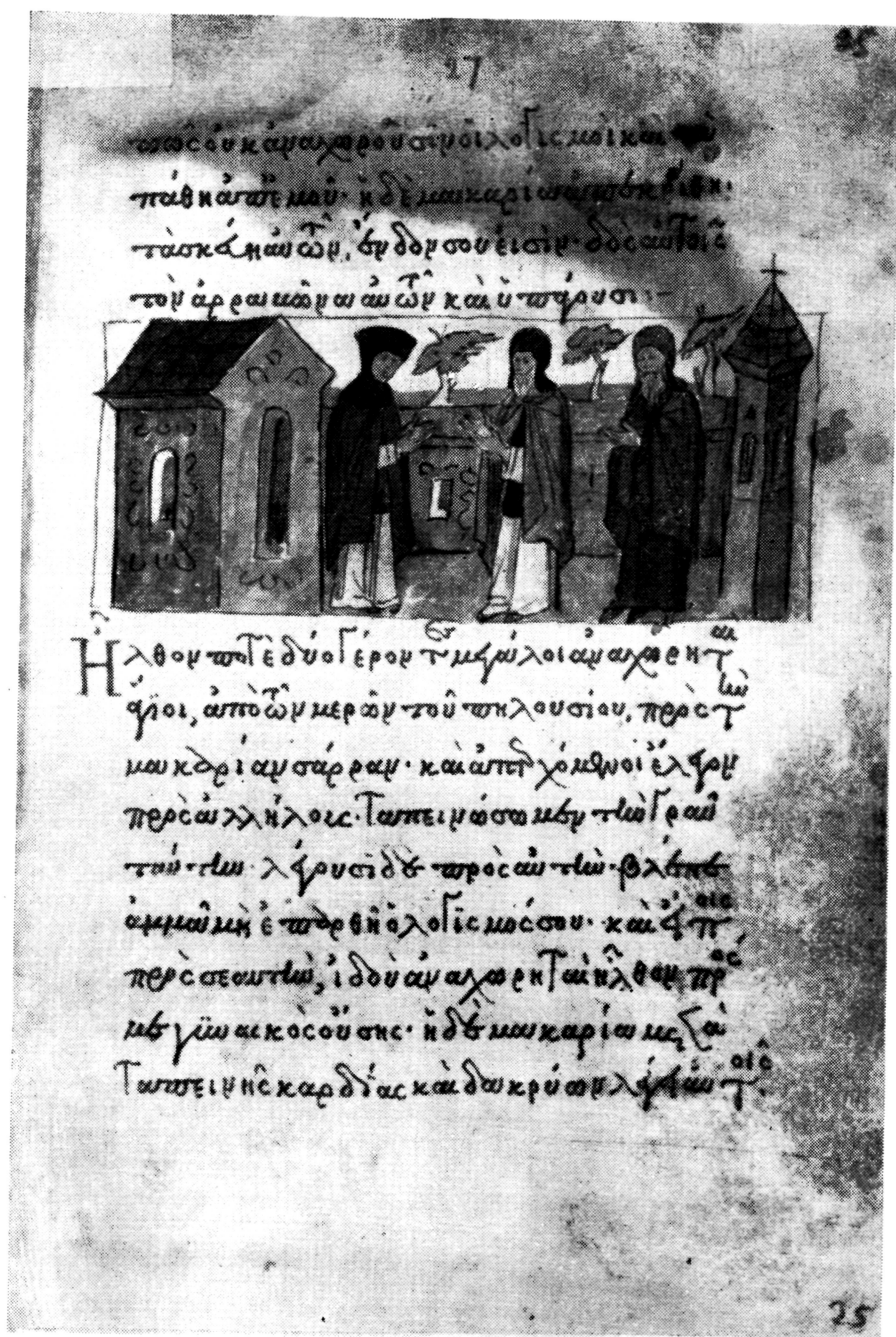 27
25
πῶς οὐκ ἀναχωροῦσιν οἱ λογισμοὶ καὶ
πάθη ἀπ' ἐμοῦ· ἡ δὲ μακαρία ἀπεκρίθη·
τὰ σκεύη αὐτῶν, ἔνδον σου εἰσίν· δὸς αὐτοῖς
τὸν ἀρραβῶνα αὐτῶν καὶ ὑπάγουσι:-
Ἦλθόν ποτε δύο γέροντες μεγάλοι ἀναχωρηταὶ
ἅγιοι, ἀπὸ τῶν μερῶν τοῦ πηλουσίου, πρὸς τὴν
μακαρίαν σάρραν· καὶ ἀπερχόμενοι ἔλεγον
πρὸς ἀλλήλοις· ταπεινώσωμεν τὴν γραῦν
ταύτην· λέγουσι δὲ πρὸς αὐτήν· βλέπε
ἀμμᾶ μὴ ἐπαρθῆ ὁ λογισμός σου· καὶ εἴποις
πρὸς σεαυτὴν, ἰδοὺ ἀναχωρηταὶ ἦλθον πρός
με γυναικὸς οὔσης· ἡ δὲ μακαρία μετὰ
ταπεινῆς καρδίας καὶ δακρύων λέγει αὐτοῖς
25